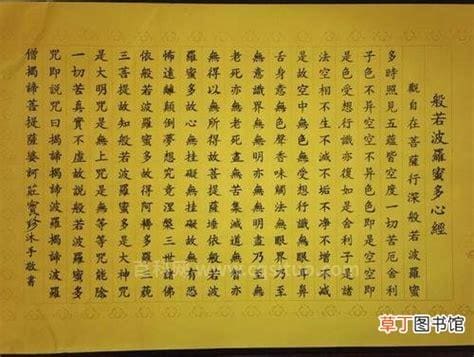 般若波羅蜜多心經
觀自在菩薩行深般若波羅蜜
多時照見五蘊皆空度一切苦厄舍利
子色不異空空不異色色即是空空即
是色受想行識亦復如是舍利子諸
法空相不生不滅不垢不淨不增不減
是故空中無色無受想行識無眼耳鼻
舌身意無色聲香味觸法無眼界乃至
無意識界無無明亦無無明盡乃至無
老死亦無老死盡無苦集滅道無智亦
無得以無所得故菩提薩埵依般若波
羅蜜多故心無罣礙無罣礙故無有恐
怖遠離顛倒夢想究竟涅槃三世諸佛
依般若波羅蜜多故得阿耨多羅三藐
三菩提故知般若波羅蜜多是大神
咒是大明咒是無上咒是無等等咒能除
一切苦真實不虛故說般若波羅蜜多
咒即說咒曰揭諦揭諦波羅揭諦波羅
僧揭諦菩提薩婆訶莊寶珍沐手敬書
草丁图书馆